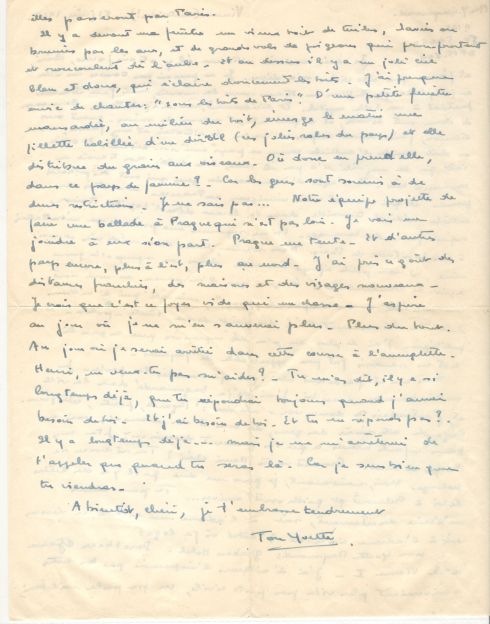 elles passeront par Paris.
Il y a devant ma fenêtre un vieux toit de tuiles, lavées ou
brunies par les ans, et de grands vols de pigeons qui
et roucoulent dès l'aube. Et au dessus il y a un joli ciel
bleu et doux, qui éclaire doucement les toits. J'ai presque
envie de chanter: "sous les toits de Paris". D'une petite fenêtre
mansardée, au milieu du toit, émerge le matin une
fillette habillée d'un dirndl (ces jolies robes du pays) et elle
distribue du grain aux oiseaux. Où donc en prend elle,
dans ce pays de famine? - Car les gens sont soumis à de
dures restrictions. Je ne sais pas... Notre équipe projette de
faire une ballade à Prague qui n'est pas loin. Je vais me
joindre à eux si on part. Prague me tente. Et d'autres
pays encore, plus à l'est, plus au nord. J'ai pris ce goût des
distances franchies, des maisons et des visages nouveaux -
Je crois que c'est ce foyer vide qui me chasse - J'aspire
au jour où je ne m'en sauverai plus. Plus du tout.
Au jour où je serai arrêtée dans cette course à l'aveuglette.
Henri, ne veux-tu pas m'aider? - Tu m'as dit, il y a si
longtemps déjà, que tu répondrais toujours quand j'aurai
besoin de toi. Et j'ai besoin de toi. Et tu ne réponds pas?.
Il y a longtemps déjà... mais je ne m'arrêterai de
t'appeler que quand tu seras là. Car je sais bien que
tu viendras.
A bientôt, chéri, je t'embrasse tendrement
Ton Yvette